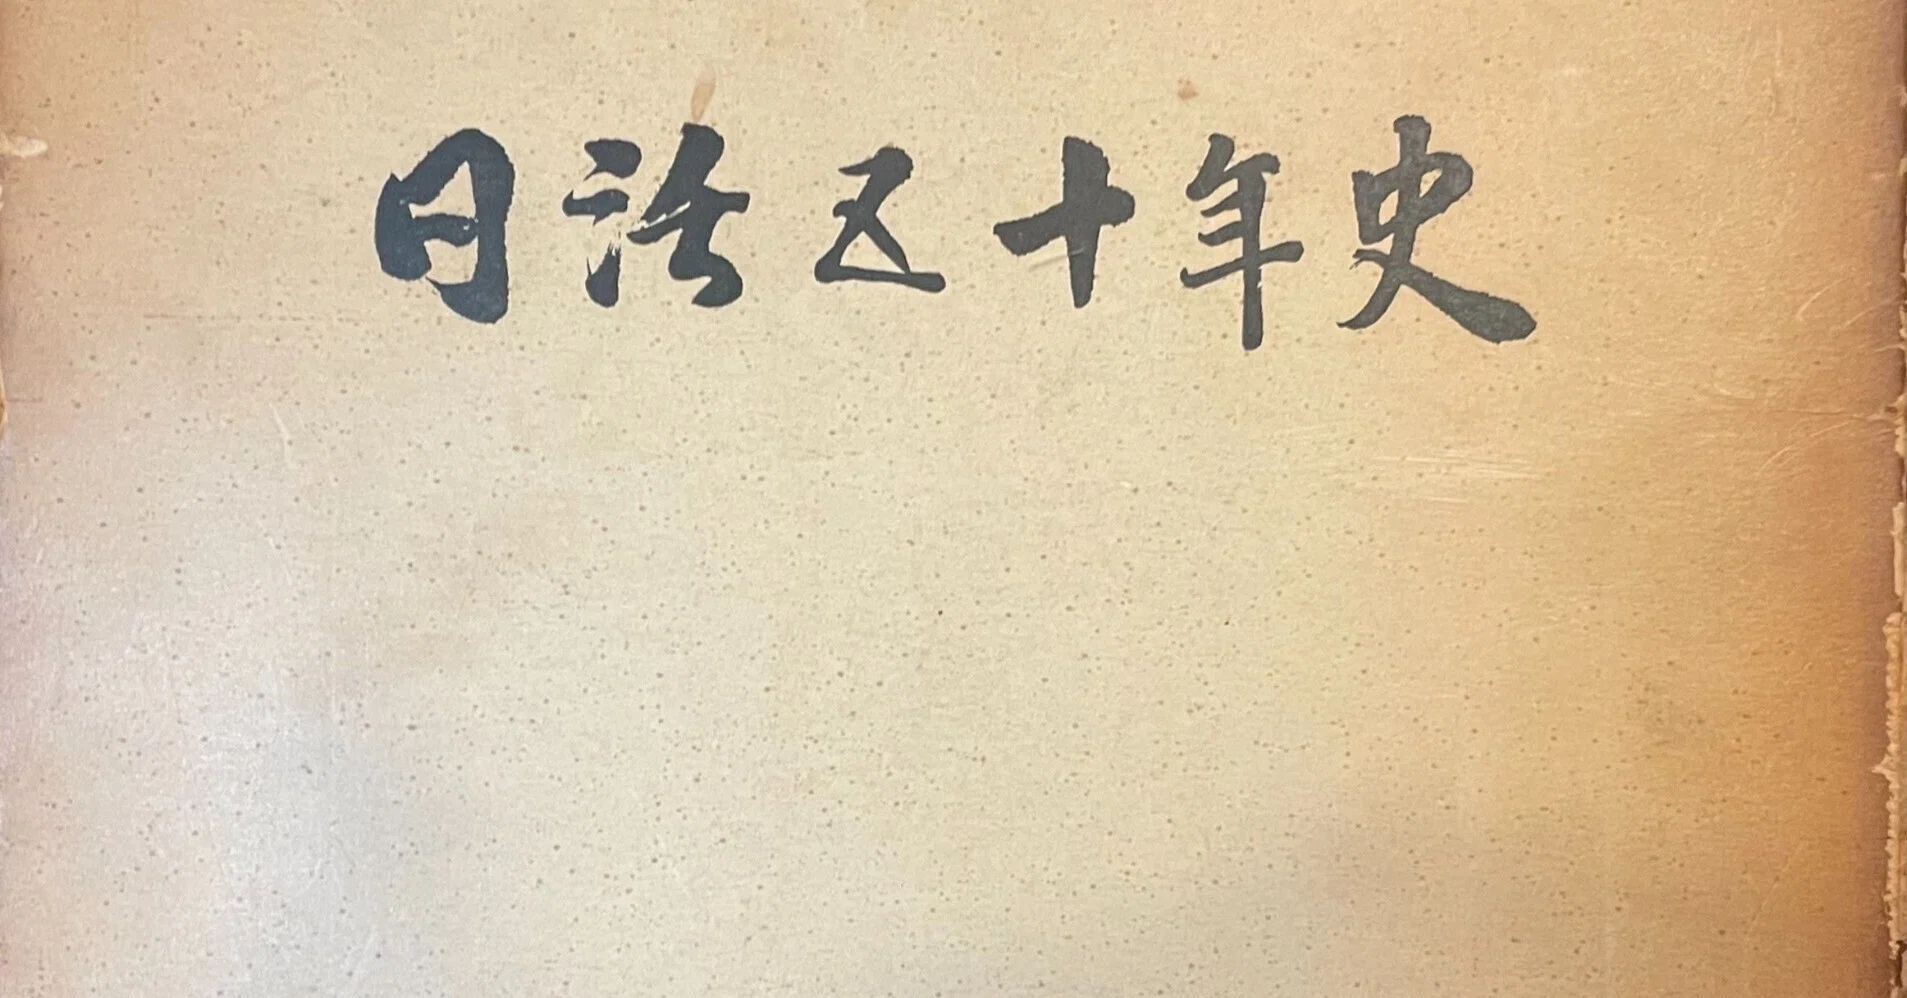 日活五十年史